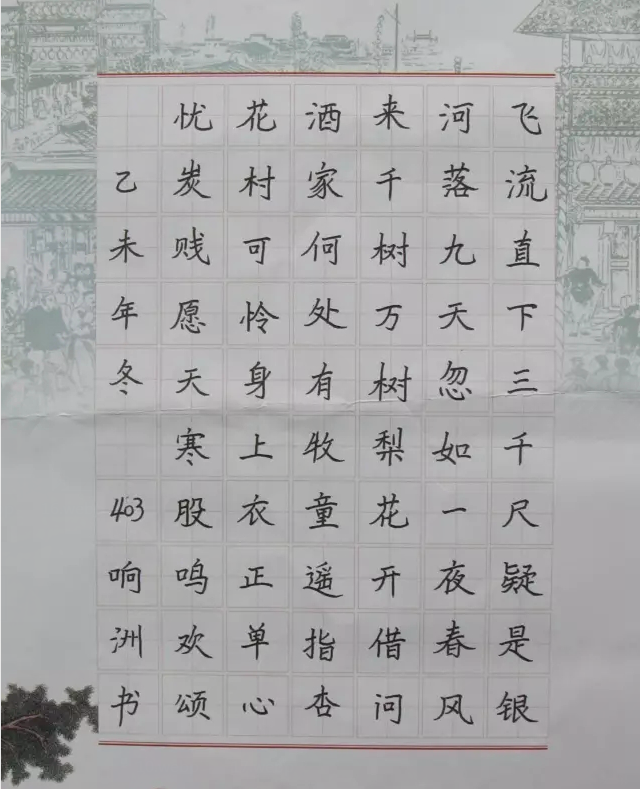 飞流直下三千尺疑是银
河落九天忽如一夜春风
来千树万树梨花开借问
酒家何处有牧童遥指杏
花村可怜身上衣正单心
忧炭贱愿天寒股鸣欢颂
乙未年冬 403响洲书